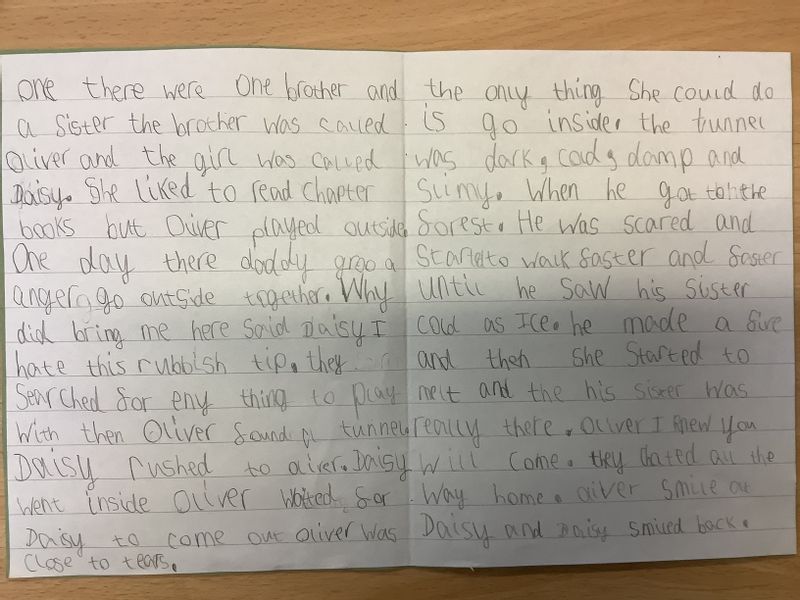 one there were one brother and
a sister the brother was called
Oliver and the girl was called
Daisy. She liked to read chapter
books but Oliver played outside.
One day there daddy groo a
anger go outside together. Why
did bring me here said Daisy I
hate this rubbish tip. they
searched for eny thing to play
with then Oliver found a tunnel
Daisy rushed to oliver. Daisy
went inside Oliver waited for
Daisy to come out Oliver was
close to tears.
the only thing She could do
is go inside. the tunnel
was dark, cad, damp and
slimy. When he got to the
forest. He was scared and
started to walk faster and faster
until he saw his sister
cold as Ice. he made a fire
and then she started to
melt and the his sister was
really there. Oliver I knew you
will come. they chated all the
way home. oliver smile at
Daisy and Daisy smiled back.